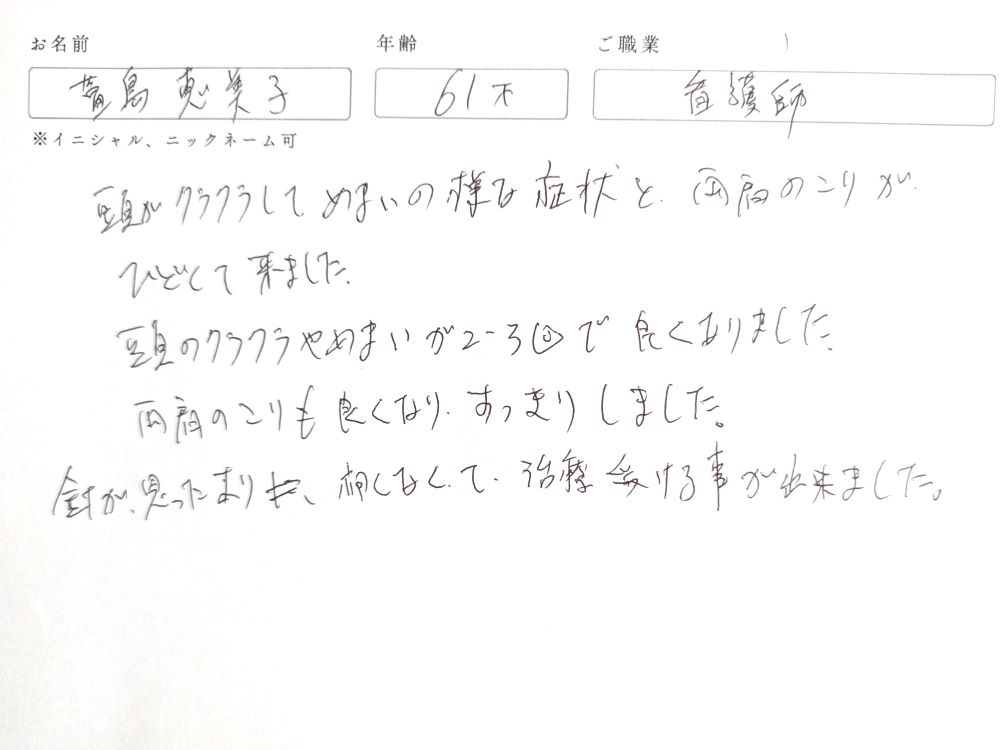 お名前 年齢 ご職業
島 恵美子 61才 看護師
※イニシャル、ニックネーム可
頭がクラクラして めまいの様な症状と、両肩のこりが
ひどくて来ました。
頭のクラクラやめまいが2-3回で良くなりました。
両肩のこりも良くなり、すっきりしました。
針が、思ったよりも、痛くなくて、治療受ける事が出来ました。